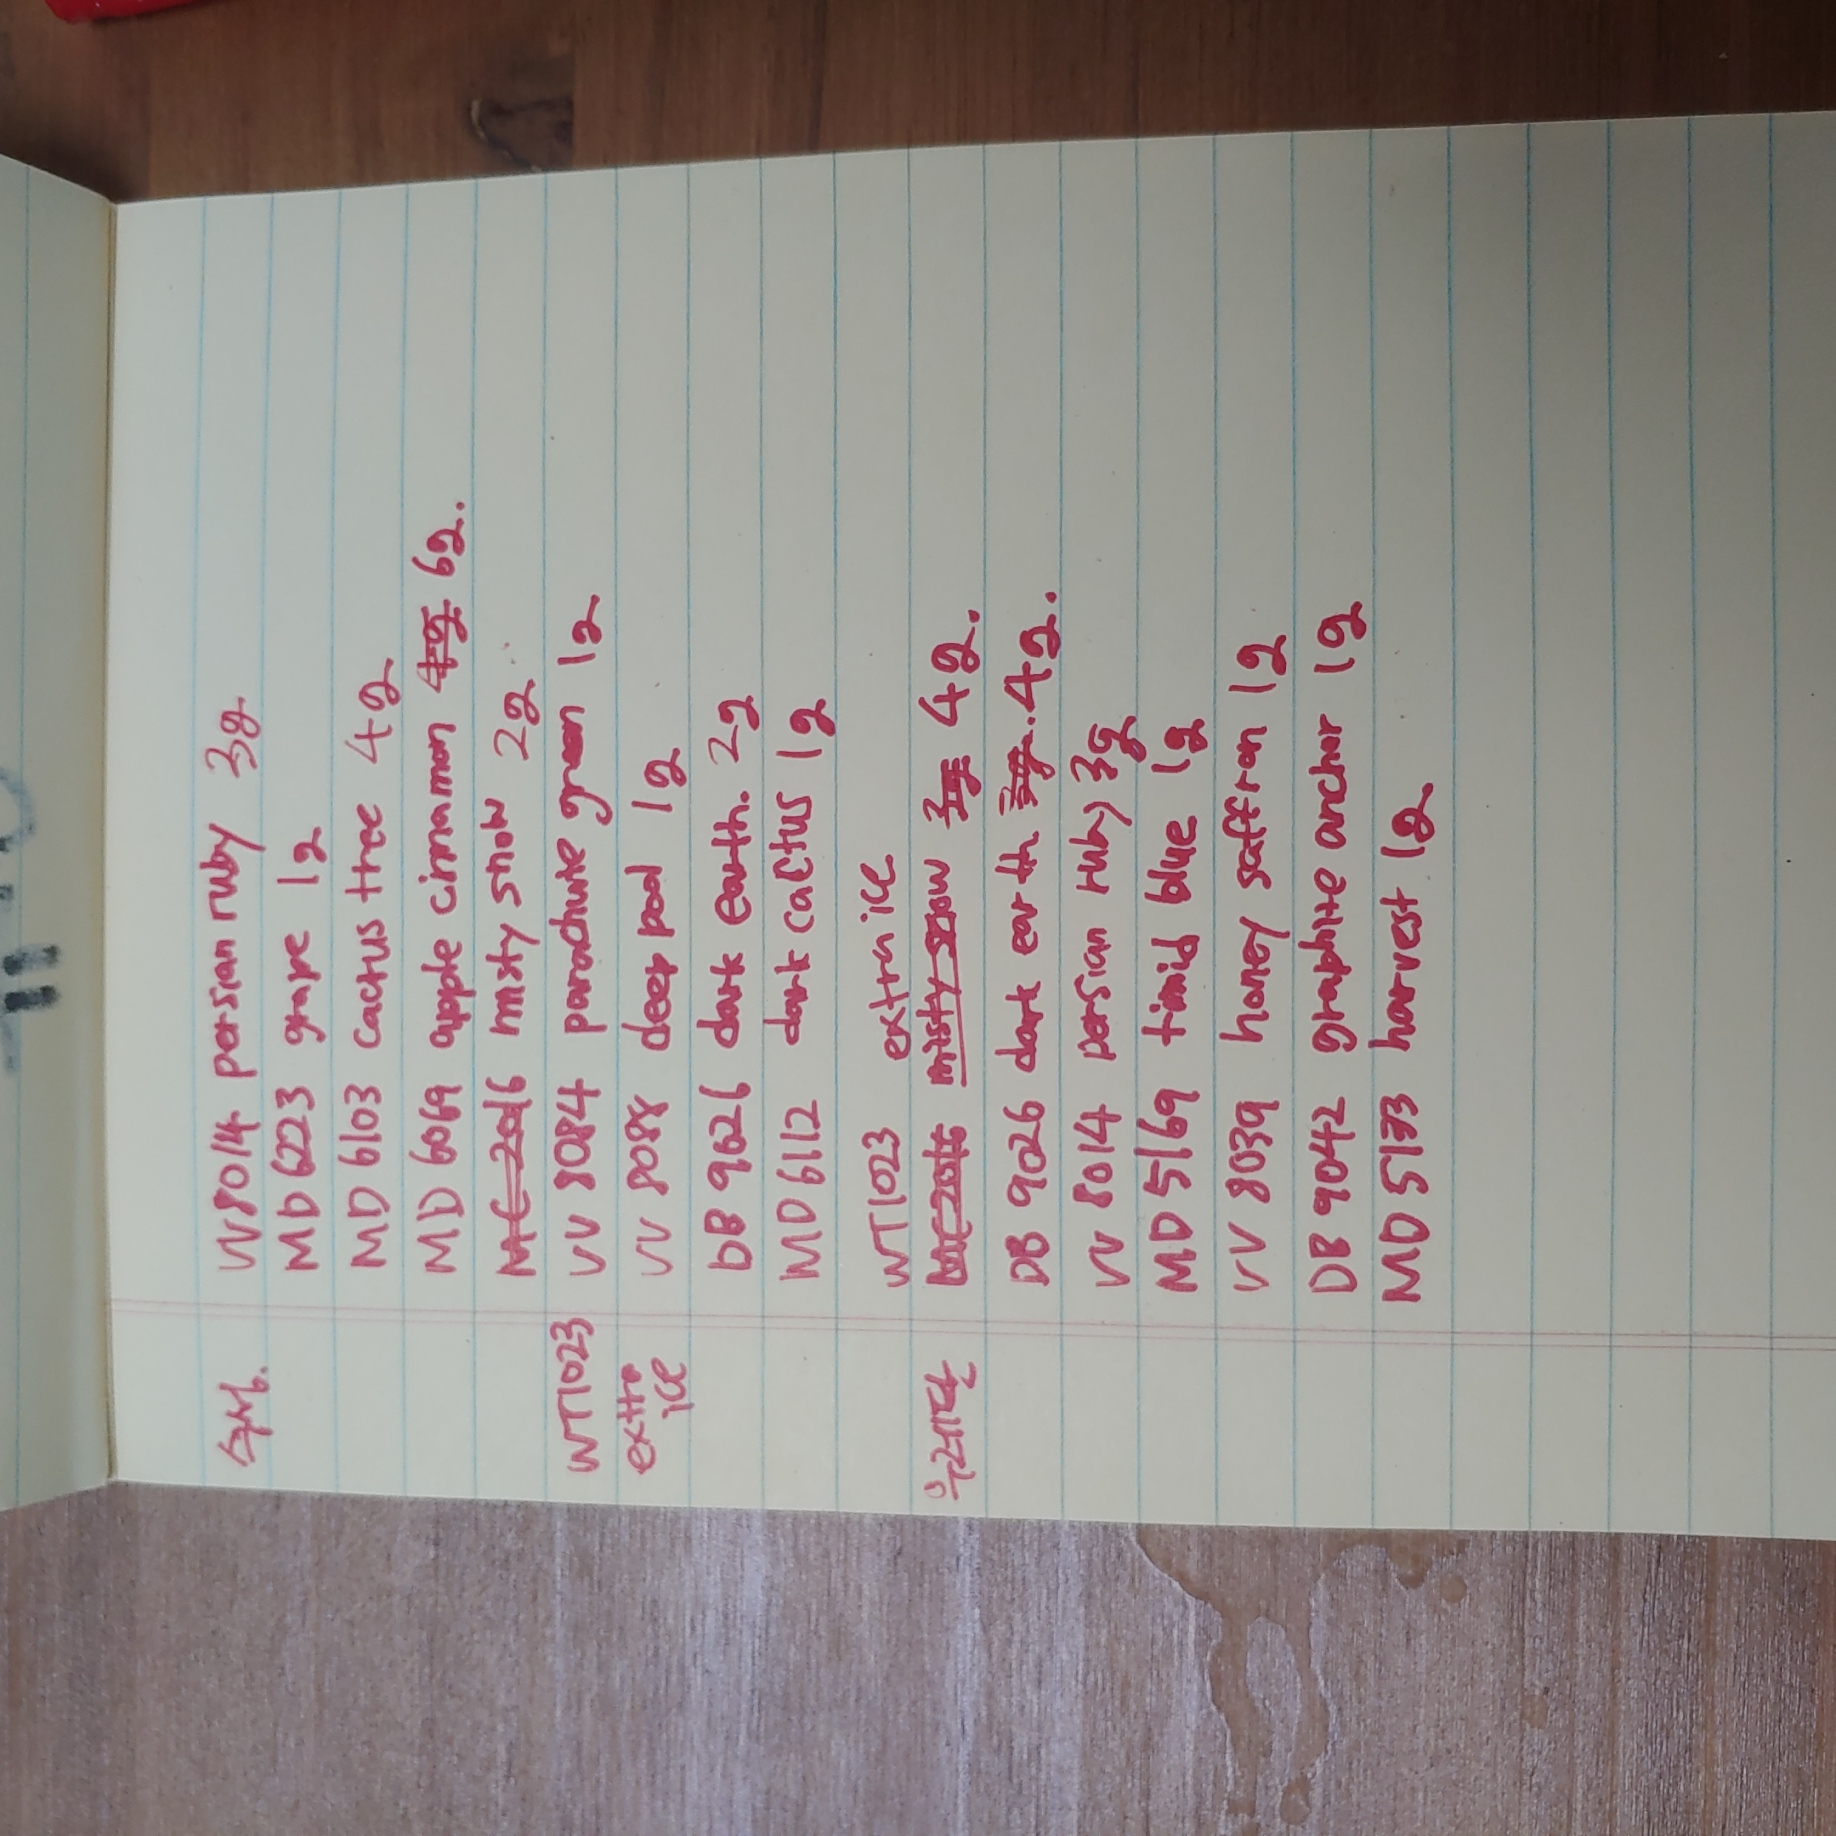 숙사.
VV8014 persian ruby 3g
MD6223 grape 1g
MD 6103 cactus tree 4g
MD 6069 apple cinnamon 4g 6g.
MC 2016 misty snow 2g
WT1023 VV 8084 parachute green 1g
extra ice VV 8088 deep pool 1g
DB 9626 dark earth. 2g
MD 6112 dark cactus 1g
WT1023 extra ice
우레탄 MC 2016 misty snow 3g 4g.
DB 9026 dark earth 3g. 4g.
VV 8014 persian ruby 3g
MD 5169 timid blue 1g
VV 8039 honey saffron 1g
DB 9042 graphite anchor 1g
MD 5173 harvest 1g